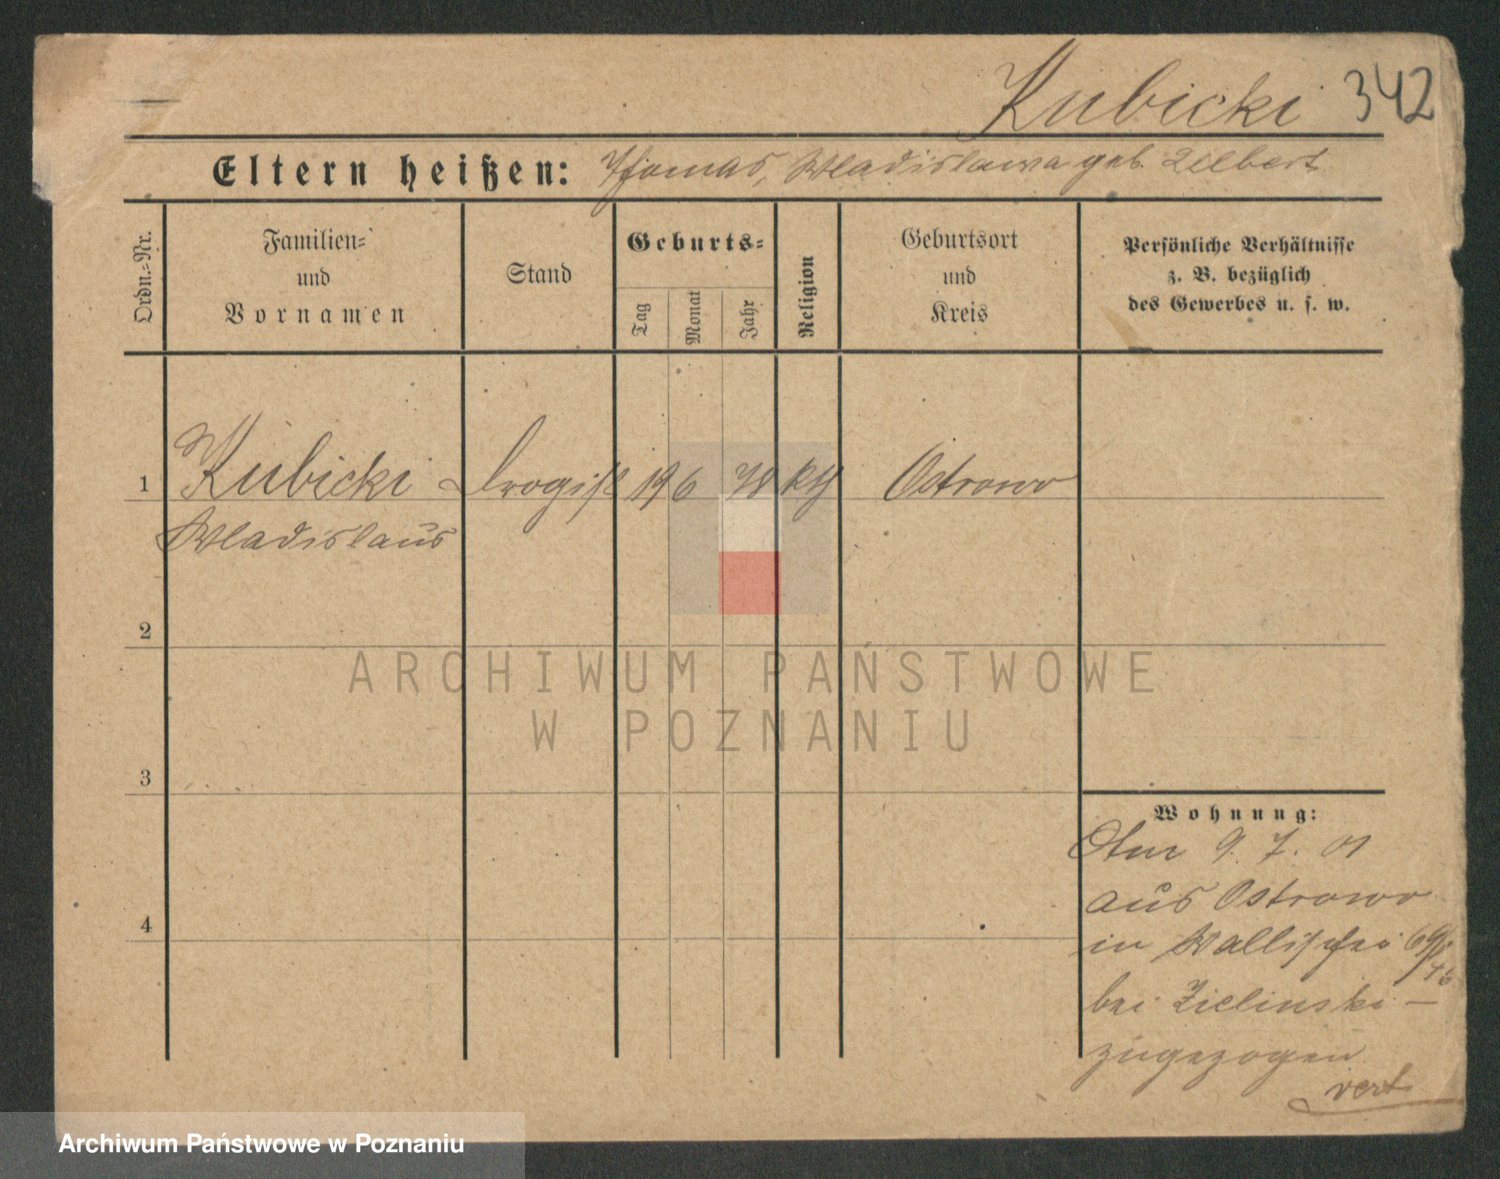 Kubicki 342
Eltern heißen: Thomas, Wladislawa geb.
Ordn.-Nr.
Familien-
und
Vornamen
Stand
Geburts-
Tag
Monat
Jahr
Religion
Geburtsort
und
Kreis
Persönliche Verhältnisse
z. B. bezüglich
des Gewerbes u. s. w.
1 Kubicki Drogist 19 6 78 kth Ostrowo
Wladislaus
2
3
4
Wohnung:
Am 9. 7. 01
aus Ostrowo
in Wallischei
bei Zielinski
zugezogen
vert
ARCHIWUM PAŃSTWOWE
W POZNANIU
Archiwum Państwowe w Poznaniu